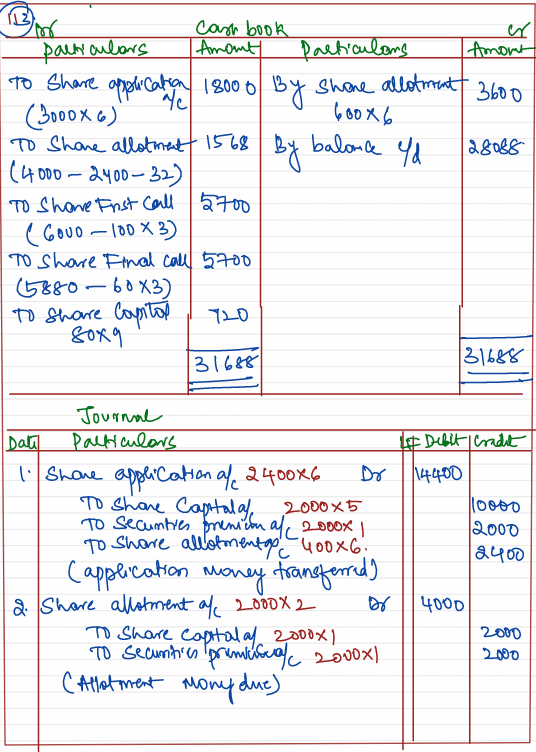 113
Dr Cash book Cr
Particulars Amount Particulars Amount
To Share application a/c 18000 By Share allotment 3600
(3000 x 6) 600 x 6
To Share allotment 1568 By balance c/d 28088
(4000 - 2400 - 32)
To Share First Call 5700
(6000 - 100 x 3)
To Share Final Call 5700
(5880 - 60 x 3)
To Share Capital 720
80 x 9
31688 31688
Journal
Date Particulars LF Debit Credit
1. Share application a/c 2400 x 6 Dr 14400
To Share Capital a/c 2000 x 5 10000
To Securities premium a/c 2000 x 1 2000
To Share allotment a/c 400 x 6. 2400
(application money transferred)
2. Share allotment a/c 2000 x 2 Dr 4000
To Share Capital a/c 2000 x 1 2000
To Securities premium a/c 2000 x 1 2000
(Allotment Money due)